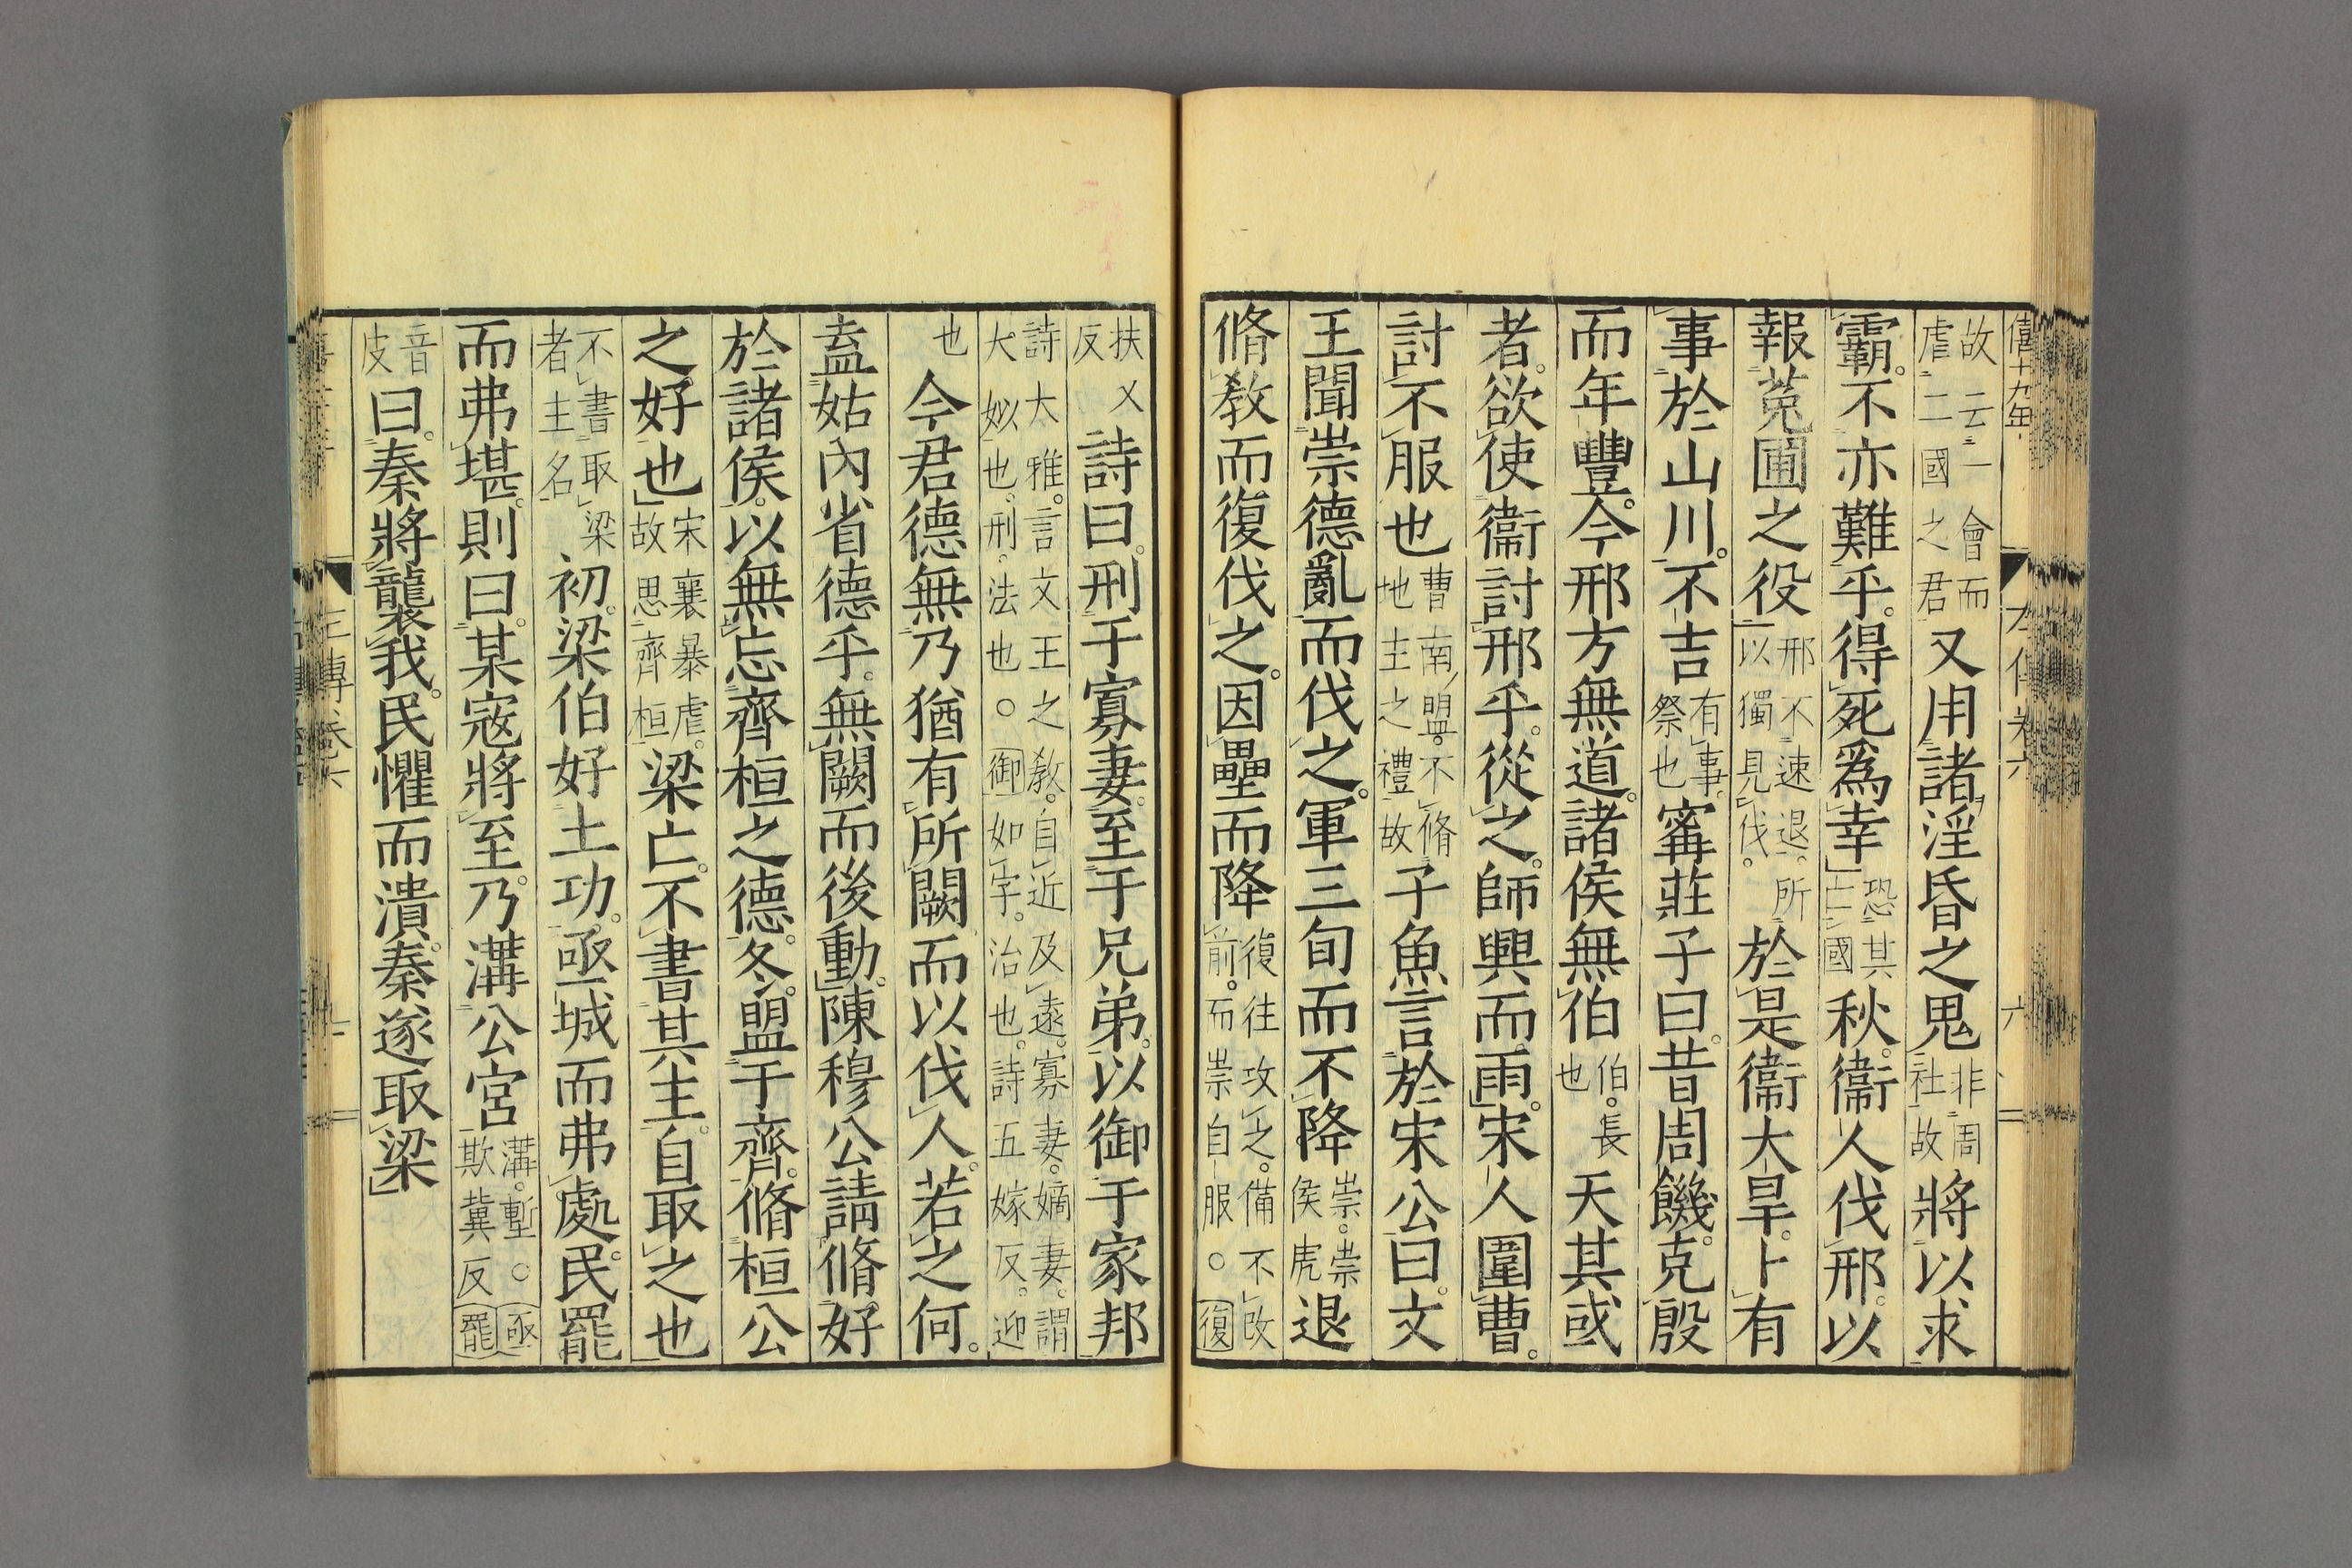 僖十九年 左傳卷六 六
故云一會而虐二國之君又用諸淫昏之鬼非周社故將以求
霸不亦難乎得死爲幸恐其亡國秋衞人伐邢以
報菟圃之役邢不速退所以獨見伐於是衞大旱卜有
事於山川不吉有事祭也甯莊子曰昔周饑克殷
而年豐今邢方無道諸侯無伯伯長也天其或
者欲使衞討邢乎從之師興而雨宋人圍曹
討不服也曹南盟不脩地主之禮故子魚言於宋公曰文
王聞崇德亂而伐之軍三旬而不降崇崇侯虎退
脩敎而復伐之因壘而降復往攻之備不改前而崇自服○復
扶又反詩曰刑于寡妻至于兄弟以御于家邦
詩大雅言文王之敎自近及遠寡妻嫡妻謂大姒也刑法也○御如字治也詩五嫁反迎
也今君德無乃猶有所闕而以伐人若之何
盍姑內省德乎無闕而後動陳穆公請脩好
於諸侯以無忘齊桓之德冬盟于齊脩桓公
之好也宋襄暴虐故思齊桓梁亡不書其主自取之也
不書取梁者主名初梁伯好土功亟城而弗處民罷
而弗堪則曰某寇將至乃溝公宮溝塹○亟欺冀反罷
音皮曰秦將襲我民懼而潰秦遂取梁